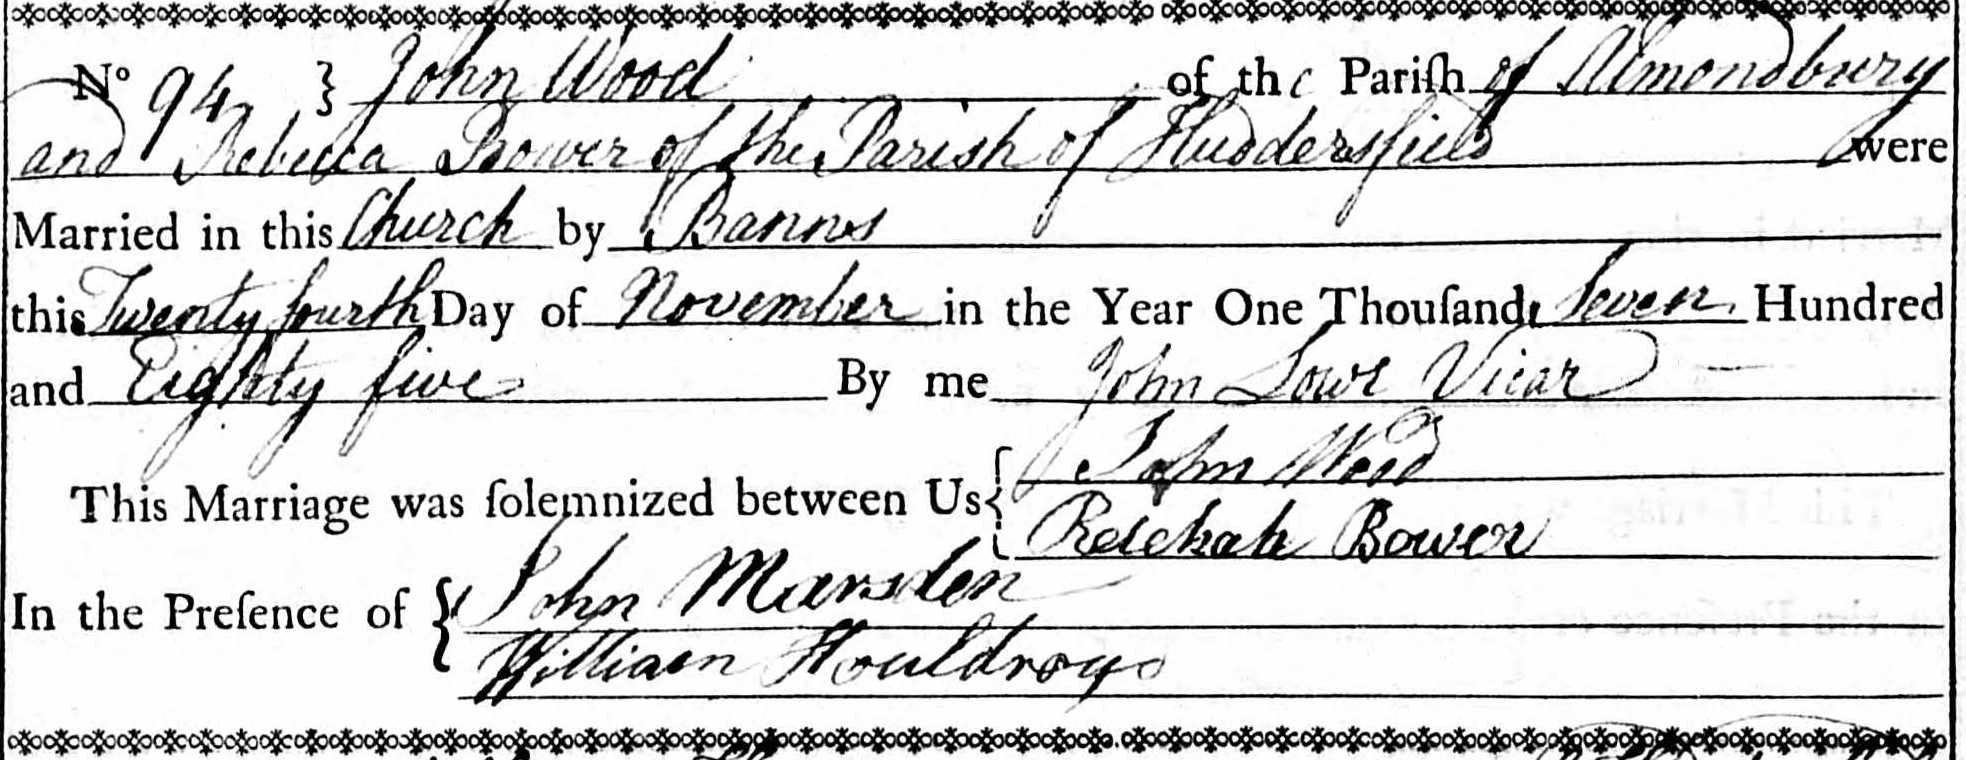 No 94 } John Wood of the Pariſh of Almondbury
and Rebecca Bower of the Parish of Huddersfield were
Married in this Church by Banns
this Twenty fourth Day of November in the Year One Thouſand Seven Hundred
and Eighty five By me John Lowe Vicar
This Marriage was ſolemnized between Us { John Wood
Rebekah Bower
In the Preſence of { John Marsden
William Houldroyd